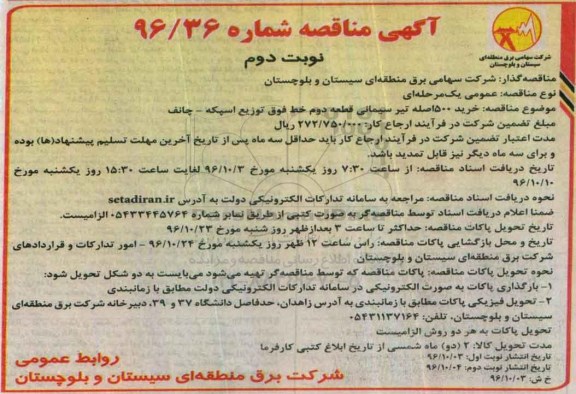 آگهی مناقصه شماره ۹۶/۳۶
نوبت دوم
شرکت سهامی برق منطقه‌ای
سیستان و بلوچستان
مناقصه‌گذار: شرکت سهامی برق منطقه‌ای سیستان و بلوچستان
نوع مناقصه: عمومی یک‌مرحله‌ای
موضوع مناقصه: خرید ۵۰۰اصله تیر سیمانی قطعه دوم خط فوق توزیع اسپکه – چانف
مبلغ تضمین شرکت در فرآیند ارجاع کار: ۲۷۲/۷۵۰/۰۰۰ ریال
مدت اعتبار تضمین شرکت در فرآیند ارجاع کار باید حداقل سه ماه پس از تاریخ آخرین مهلت تسلیم پیشنهاد(ها) بوده
و برای سه ماه دیگر نیز قابل تمدید باشد.
تاریخ دریافت اسناد مناقصه: از ساعت ۷:۳۰ روز یکشنبه مورخ ۹۶/۱۰/۳ لغایت ساعت ۱۵:۳۰ روز یکشنبه مورخ
۹۶/۱۰/۱۰
نحوه دریافت اسناد مناقصه: مراجعه به سامانه تدارکات الکترونیکی دولت به آدرس setadiran.ir
ضمنا اعلام دریافت اسناد توسط مناقصه‌گر به صورت کتبی از طریق نمابر شماره ۰۵۴۳۳۴۴۵۷۶۴ الزامیست.
تاریخ تحویل پاکات مناقصه: حداکثر تا ساعت ۳ بعدازظهر روز شنبه مورخ ۹۶/۱۰/۲۳
تاریخ و محل بازگشایی پاکات مناقصه: راس ساعت ۱۲ ظهر روز یکشنبه مورخ ۹۶/۱۰/۲۴ – امور تدارکات و قراردادهای
شرکت برق منطقه‌ای سیستان و بلوچستان
نحوه تحویل پاکات مناقصه: پاکات مناقصه که توسط مناقصه‌گر تهیه می‌شود می‌بایست به دو شکل تحویل شود:
۱– بارگذاری پاکات به صورت الکترونیکی در سامانه تدارکات الکترونیکی دولت مطابق با زمانبندی
۲– تحویل فیزیکی پاکات مطابق با زمانبندی به آدرس زاهدان، حدفاصل دانشگاه ۳۷ و ۳۹، دبیرخانه شرکت برق منطقه‌ای
سیستان و بلوچستان، تلفن: ۰۵۴۳۱۱۳۷۱۶۴
تحویل پاکات به هر دو روش الزامیست
مدت تحویل کالا: ۲ (دو) ماه شمسی از تاریخ ابلاغ کتبی کارفرما
تاریخ انتشار نوبت اول: ۹۶/۱۰/۰۳
تاریخ انتشار نوبت دوم: ۹۶/۱۰/۰۴
خ ش: ۹۶/۱۰/۰۳
روابط عمومی
شرکت برق منطقه‌ای سیستان و بلوچستان